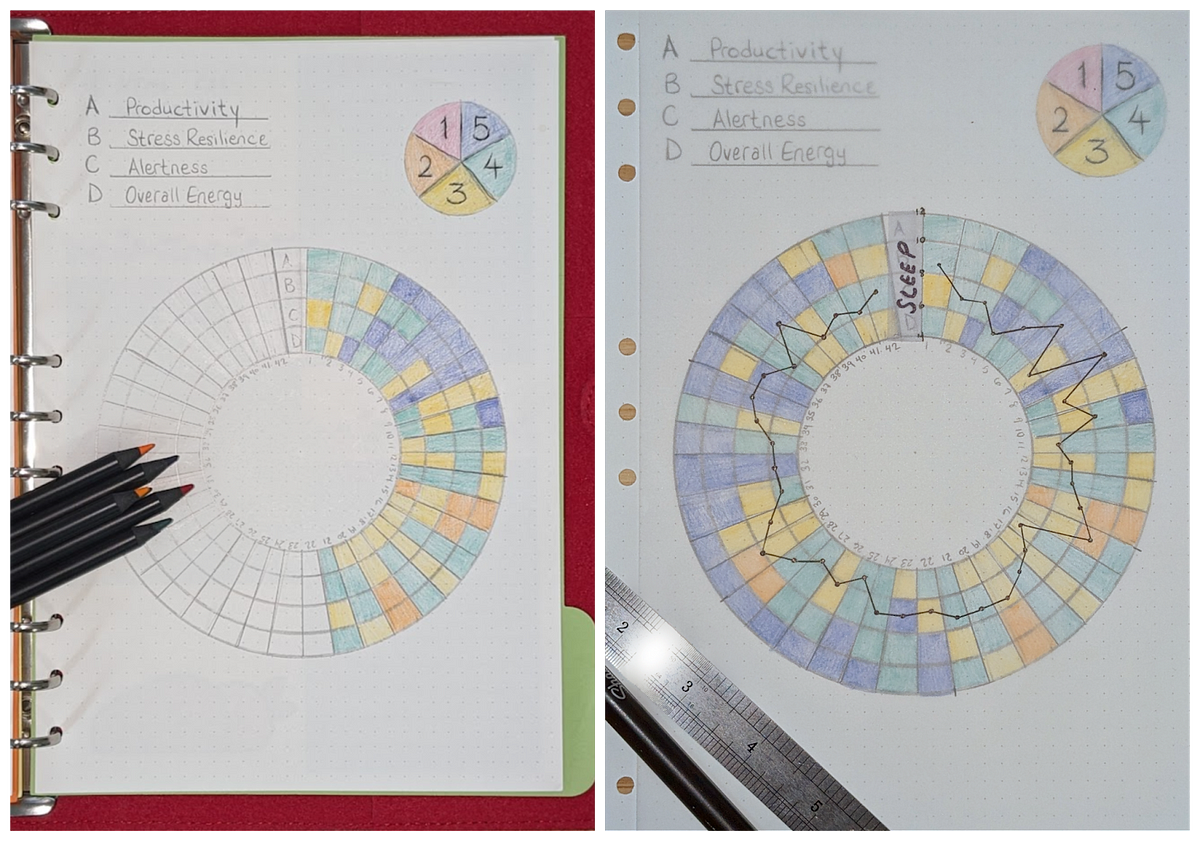 A Productivity
B Stress Resilience
C Alertness
D Overall Energy
1 5
2 4
3
A
B
C
D
1 2 3 4 5 6 7 8 9 10 11 12 13 14 15 16 17 18 19 20 21 22 23
38 39 40 41 42
A Productivity
B Stress Resilience
C Alertness
D Overall Energy
1 5
2 4
3
A
SLEEP
D
12
10
1 2 3 4 5 6 7 8 9 10 11 12 13 14 15 16 17 18 19 20 21 22 23 24 25 26 27 28 29 30 31 32
35 36 37 38 39 40 41 42
2
3
4
5